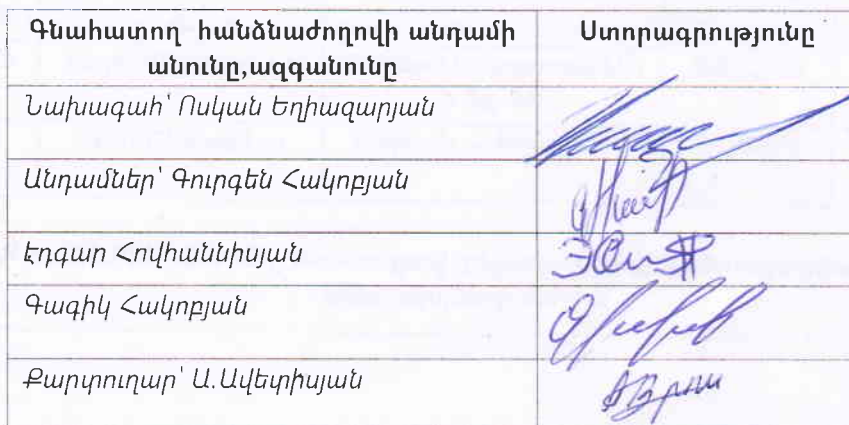 Գնահատող հանձնաժողովի անդամի
անունը,ազգանունը
Ստորագրությունը
Նախագահ՝ Ոսկան Եղիազարյան
Անդամներ՝ Գուրգեն Հակոբյան
Էդգար Հովհաննիսյան
Գագիկ Հակոբյան
Քարտուղար՝ Ա.Ավետիսյան